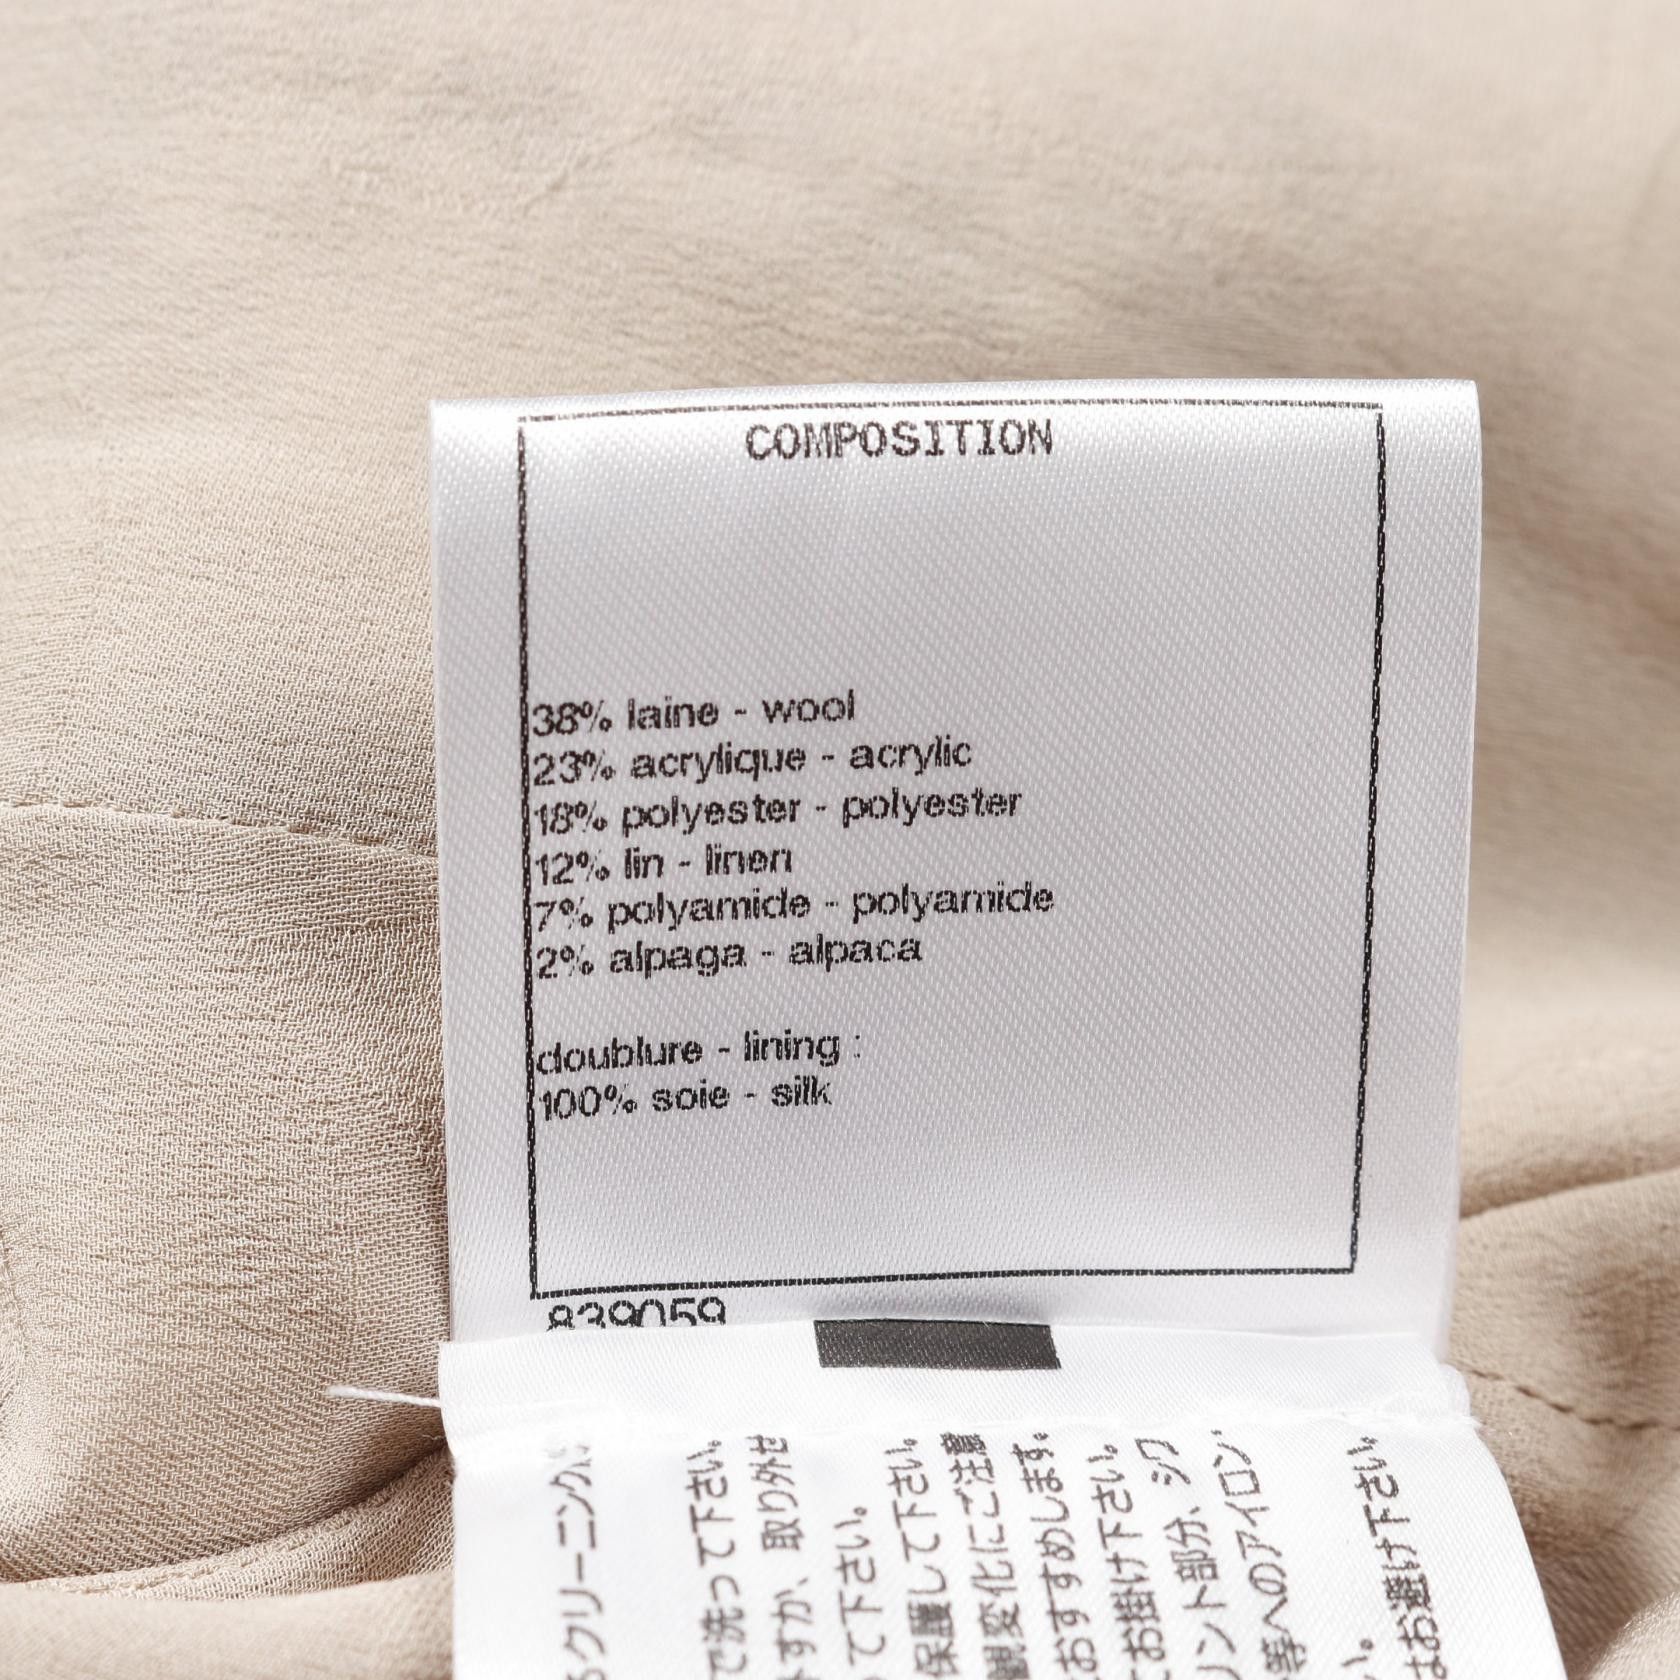 COMPOSITION
38% laine - wool
23% acrylique - acrylic
18% polyester - polyester
12% lin - linen
7% polyamide - polyamide
2% alpaga - alpaca
doublure - lining :
100% soie - silk
839059
クリーニング
で洗って下さい。
すか、取り外せ
て下さい。
保護して下さい。
観変化にご注意
おすすめします。
お掛け下さい。
ント部分、シワ
等へのアイロン
い。
はお避け下さい。